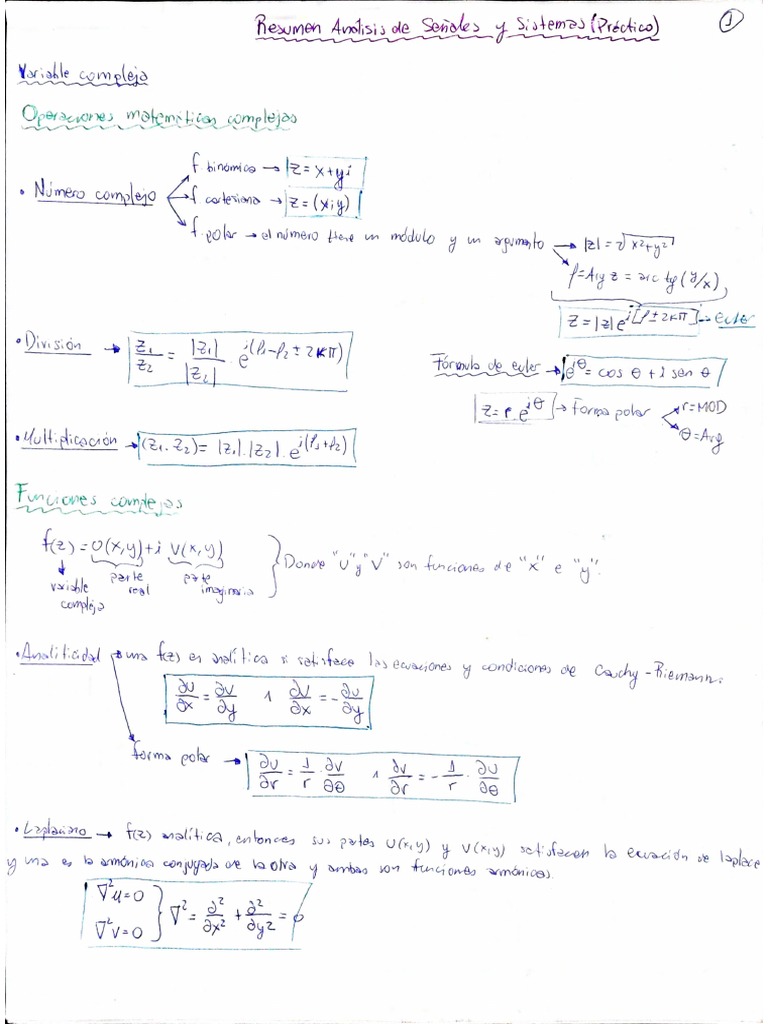 Resumen Análisis de Señales y Sistemas (Práctico)
1
Variable compleja
Operaciones matemáticas complejas
• Número complejo
f. binómica → z = x + yi
f. cartesiana → z = (x; y)
f. polar → el número tiene un módulo y un argumento → |z| = 2√x²+y²
φ = Arg z = arc tg (y/x)
z = |z| e^{i[φ ± 2kπ]} → Euler
• División → z₁/z₂ = |z₁|/|z₂| · e^{i(φ₁-φ₂ ± 2kπ)}
Fórmula de euler → e^{iθ} = cos θ + i sen θ
z = r · e^{iθ} → Forma polar
r = MOD
θ = Arg
• Multiplicación → (z₁ · z₂) = |z₁| · |z₂| · e^{i(φ₁+φ₂)}
Funciones complejas
f(z) = U(x,y) + i V(x,y) } Donde "U" y "V" son funciones de "x" e "y".
variable compleja
parte real
parte imaginaria
• Analiticidad → una f(z) es analítica si satisface las ecuaciones y condiciones de Cauchy-Riemann:
∂U/∂x = ∂V/∂y ∧ ∂V/∂x = -∂U/∂y
forma polar → ∂U/∂r = 1/r · ∂V/∂θ ∧ ∂V/∂r = -1/r · ∂U/∂θ
• Laplaciano → f(z) analítica, entonces sus partes U(x,y) y V(x,y) satisfacen la ecuación de laplace
y una es la armónica conjugada de la otra y ambas son funciones armónicas.
∇²U = 0
∇²V = 0 } ∇² = ∂²/∂x² + ∂²/∂y² = 0